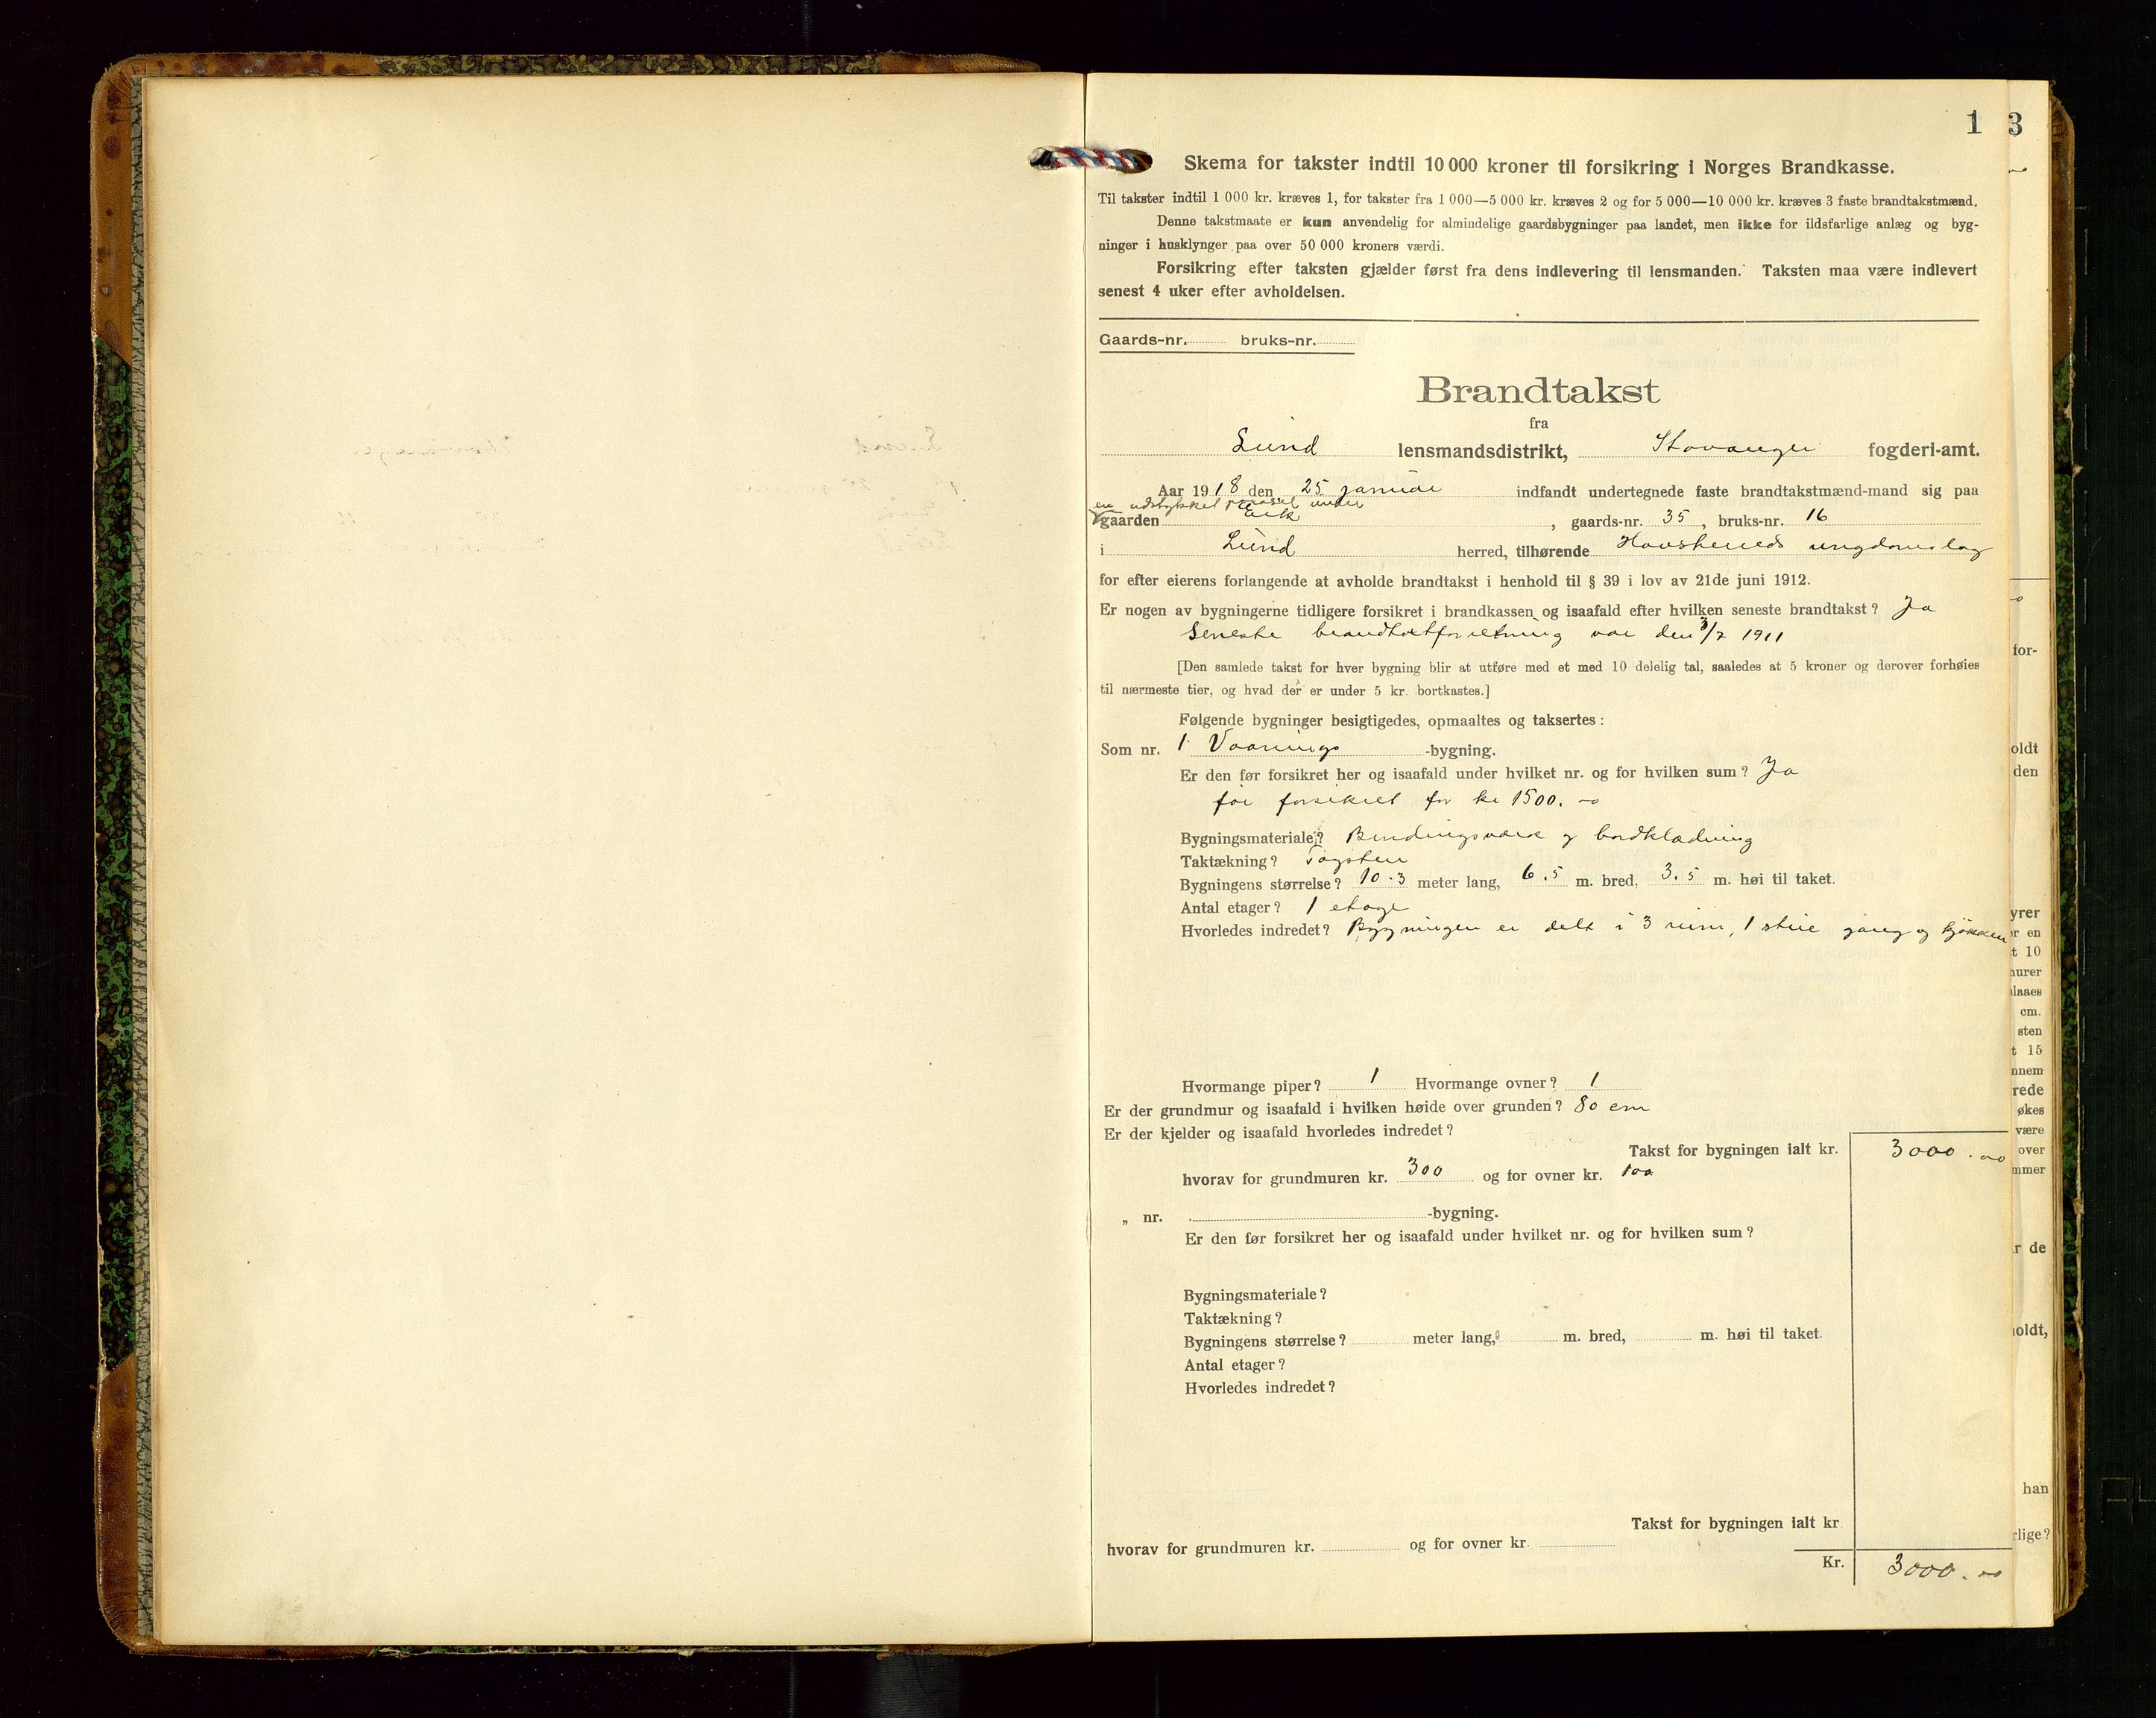 1
3
Skema for takster indtil 10 000 kroner til forsikring i Norges Brandkasse.
Til takster indtil 1 000 kr. kræves 1, for takster fra 1 000—5 000 kr. kræves 2 og for 5 000—10 000 kr. kræves 3 faste brandtakstmænd.
Denne takstmaate er kun anvendelig for almindelige gaardsbygninger paa landet, men ikke for ildsfarlige anlæg og byg-
ninger i husklynger paa over 50 000 kroners værdi.
Forsikring efter taksten gjælder først fra dens indlevering til lensmanden. Taksten maa være indlevert
senest 4 uker efter avholdelsen.
Gaards-nr. bruks-nr.
Brandtakst
fra
Lund lensmandsdistrikt, Stavanger fogderi-amt.
Aar 1918 den 25 januar indfandt undertegnede faste brandtakstmænd-mand sig paa
en udstykket parcel under
gaarden Eik, gaards-nr. 35, bruks-nr. 16
i Lund herred, tilhørende Hovsherreds ungdomslag
for efter eierens forlangende at avholde brandtakst i henhold til § 39 i lov av 21de juni 1912.
Er nogen av bygningerne tidligere forsikret i brandkassen og isaafald efter hvilken seneste brandtakst? Ja
Seneste brandtakstforretning var den 3/7 1911
[Den samlede takst for hver bygning blir at utføre med et med 10 delelig tal, saaledes at 5 kroner og derover forhøies
til nærmeste tier, og hvad der er under 5 kr. bortkastes.]
Følgende bygninger besigtigedes, opmaaltes og taksertes:
Som nr. 1 Vaanings-bygning.
Er den før forsikret her og isaafald under hvilket nr. og for hvilken sum? Ja
før forsikret for kr 1500.
Bygningsmateriale? Bindingsværk og bordklædning
Taktækning? Tagsten
Bygningens størrelse? 10.3 meter lang, 6.5 m. bred, 3.5 m. høi til taket.
Antal etager? 1 etage
Hvorledes indredet? Bygningen er delt i 3 rum, 1 stue gang og kjøkken
Hvormange piper? 1 Hvormange ovner? 1
Er der grundmur og isaafald i hvilken høide over grunden? 80 cm
Er der kjelder og isaafald hvorledes indredet?
Takst for bygningen ialt kr. 3000.00
hvorav for grundmuren kr. 300 og for ovner kr. 100
„ nr. -bygning.
Er den før forsikret her og isaafald under hvilket nr. og for hvilken sum?
Bygningsmateriale?
Taktækning?
Bygningens størrelse? meter lang, m. bred, m. høi til taket.
Antal etager?
Hvorledes indredet?
Takst for bygningen ialt kr
hvorav for grundmuren kr. og for ovner kr.
Kr. 3000.00
for-
oldt
den
yrer
er en
t 10
nurer
laaes
cm.
sten
t 15
nnem
rede
økes
være
over
mmer
r de
holdt,
han
rlige?